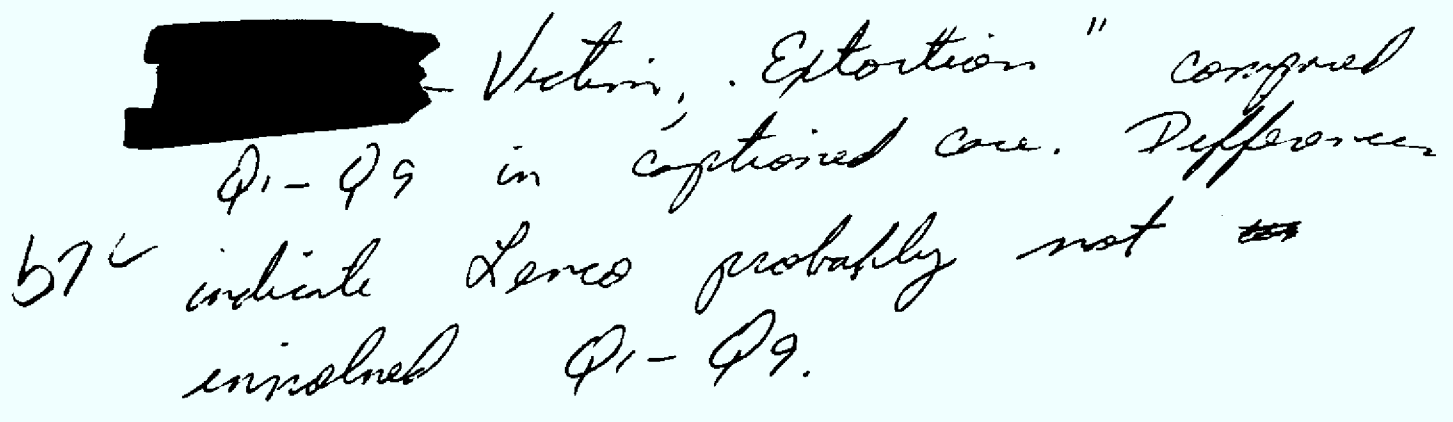 - Victim, . Extortion" compared
Q1-Q9 in captioned case. Differences
b7C indicate Lenco probably not
involved Q1-Q9.